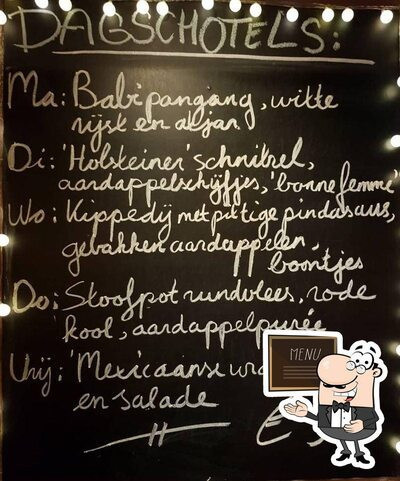 DAGSCHOTELS:
Ma: Babi pangang, witte
rijst en atjar
Di: 'Holsteiner' schnitzel,
aardappelschijfjes, 'bonne femme'
Wo: Kippedij met pittige pindasaus,
gebakken aardappelen,
boontjes
Do: Stoofpot rundvlees, rode
kool, aardappelpurée
MENU
Vrij: 'Mexicaanse
en salade
€